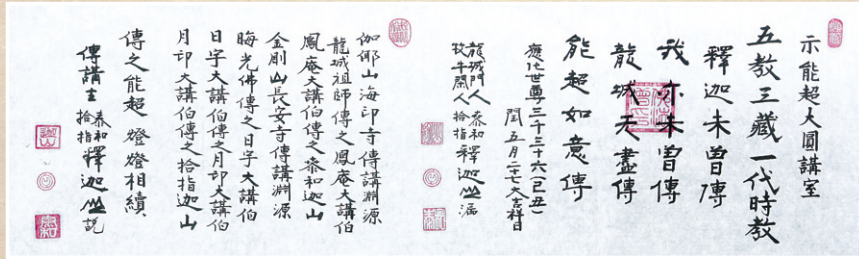 示能超大圓講室
五教三藏一代時教
釋迦未曾傳
我亦未曾傳
龍城无盡傳
能超如意傳
應化世尊三千三十六(己丑)
閏五月二十七大吉祥日
龍城門人 泰和
牧牛閑人 拾指 釋迦山 漏
伽耶山海印寺傳講淵源
龍城祖師傳之鳳庵大講伯
鳳庵大講伯傳之泰和迦山
金剛山長安寺傳講淵源
晦光佛傳之日宇大講伯
日宇大講伯傳之月印大講伯
月印大講伯傳之拾指迦山
傳之能超 燈燈相續
傳講主 泰和 拾指 釋迦山 説